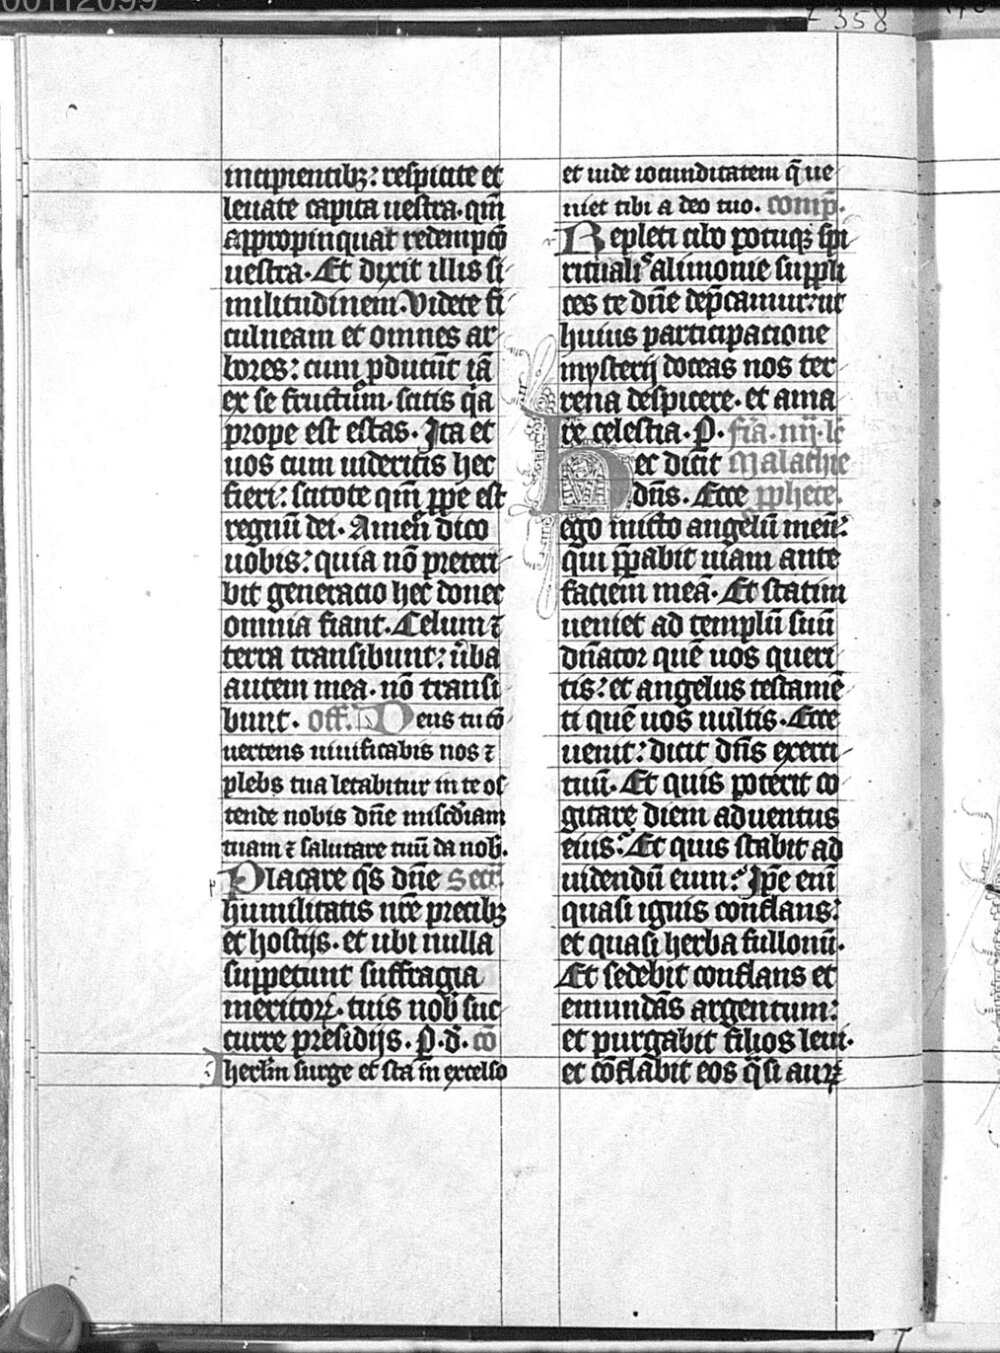 00112099
358
incipientibꝫ: respicite et
leuate capita uestra. qm̄
appropinquat redempcō
uestra. Et dixit illis si
militudinem. Videte fi
culneam et omnes ar
bores: cum ꝓducūt iā
ex se fructum. scitis qꝛ
prope est estas. Ita et
uos cum uideritis hec
fieri: scitote qm̄ ꝓpe est
regnū dei. Amen dico
uobis: quia nō preteri
bit generacio hec donec
omnia fiant. Celum ⁊
terra transibunt: ūba
autem mea. nō transi
bunt. Off. Deus tu cō
uertens uiuificabis nos ⁊
plebs tua letabitur in te os
tende nobis dn̄e mīscdiam
tuam ⁊ salutare tuū da nob̄.
Placare q̄s dn̄e Secr̄.
humilitatis nr̄e precibꝫ
et hostijs. et ubi nulla
suppetunt suffragia
meritoꝝ. tuis nob̄ suc
curre presidijs. P. d. cō
Iherl̄m surge et sta in excelso
et uide iocunditatem q̄ ue
niet tibi a deo tuo. comp̄.
Repleti cibo potuqꝫ spi
rituali alimonie suppli
ces te dn̄e dep̄camur: ut
huius participacione
mysterij doceas nos ter
rena despicere. et ama
re celestia. P. fīa. iiij. lc̄
hec dicit Malachie
dn̄s. Ecce ꝓphete.
ego mitto angelū meū:
qui p̄pabit uiam ante
faciem meā. Et statim
ueniet ad templū suū
dn̄ator quē uos queri
tis: et angelus testamē
ti quē uos uultis. Ecce
uenit: dicit dn̄s exerci
tuū. Et quis poterit co
gitare diem aduentus
eius: Et quis stabit ad
uidendū eum: Ip̄e eni
quasi ignis conflans:
et quasi herba fullonū.
Et sedebit conflans et
emundās argentum:
et purgabit filios leui.
et cōflabit eos q̄si auꝝ